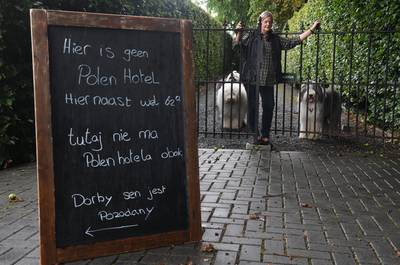 Hier is geen
Polen Hotel
Hiernaast wel 62a
tutaj nie ma
Polenhotela obok
Dorby sen jest
Pozadany